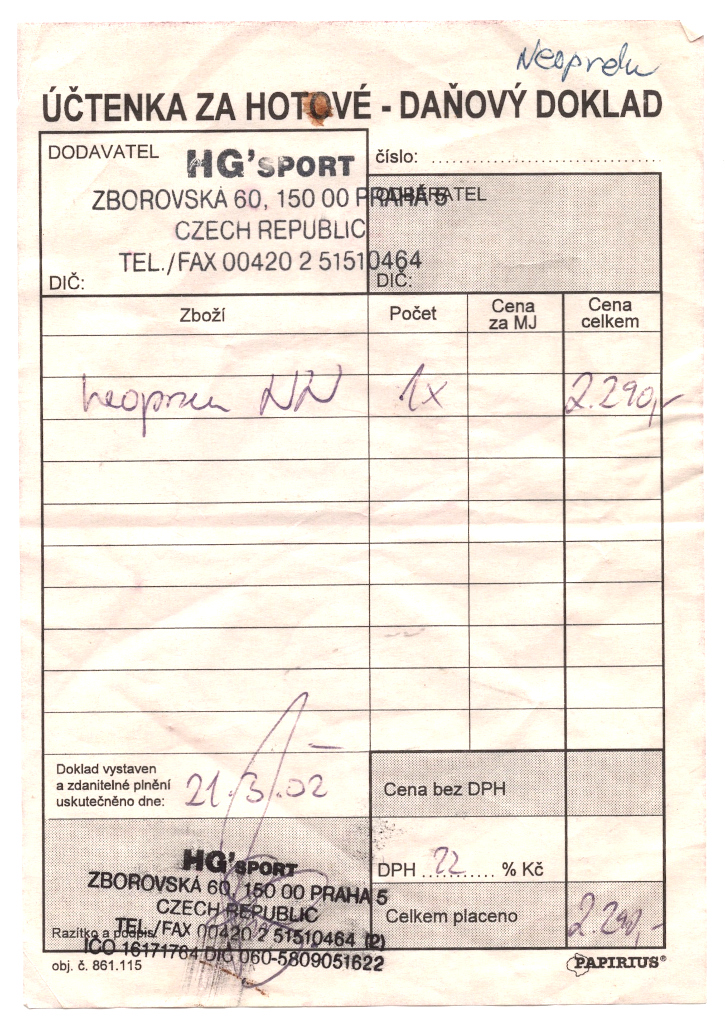 Neopren
ÚČTENKA ZA HOTOVÉ - DAŇOVÝ DOKLAD
DODAVATEL
HG'SPORT
ZBOROVSKÁ 60, 150 00 PRAHA 5
CZECH REPUBLIC
TEL./FAX 00420 2 51510464
DIČ:
číslo:
ODBĚRATEL
DIČ:
Zboží Počet Cena za MJ Cena celkem
neopren NN 1x 2.290,-
Doklad vystaven
a zdanitelné plnění
uskutečněno dne: 21.3.02
Cena bez DPH
DPH 22 % Kč
Celkem placeno 2.290,-
HG'SPORT
ZBOROVSKÁ 60, 150 00 PRAHA 5
CZECH REPUBLIC
TEL./FAX 00420 2 51510464 (2)
IČO 16171764 DIČ 060-5809051622
Razítko a podpis
obj. č. 861.115
PAPIRIUS®